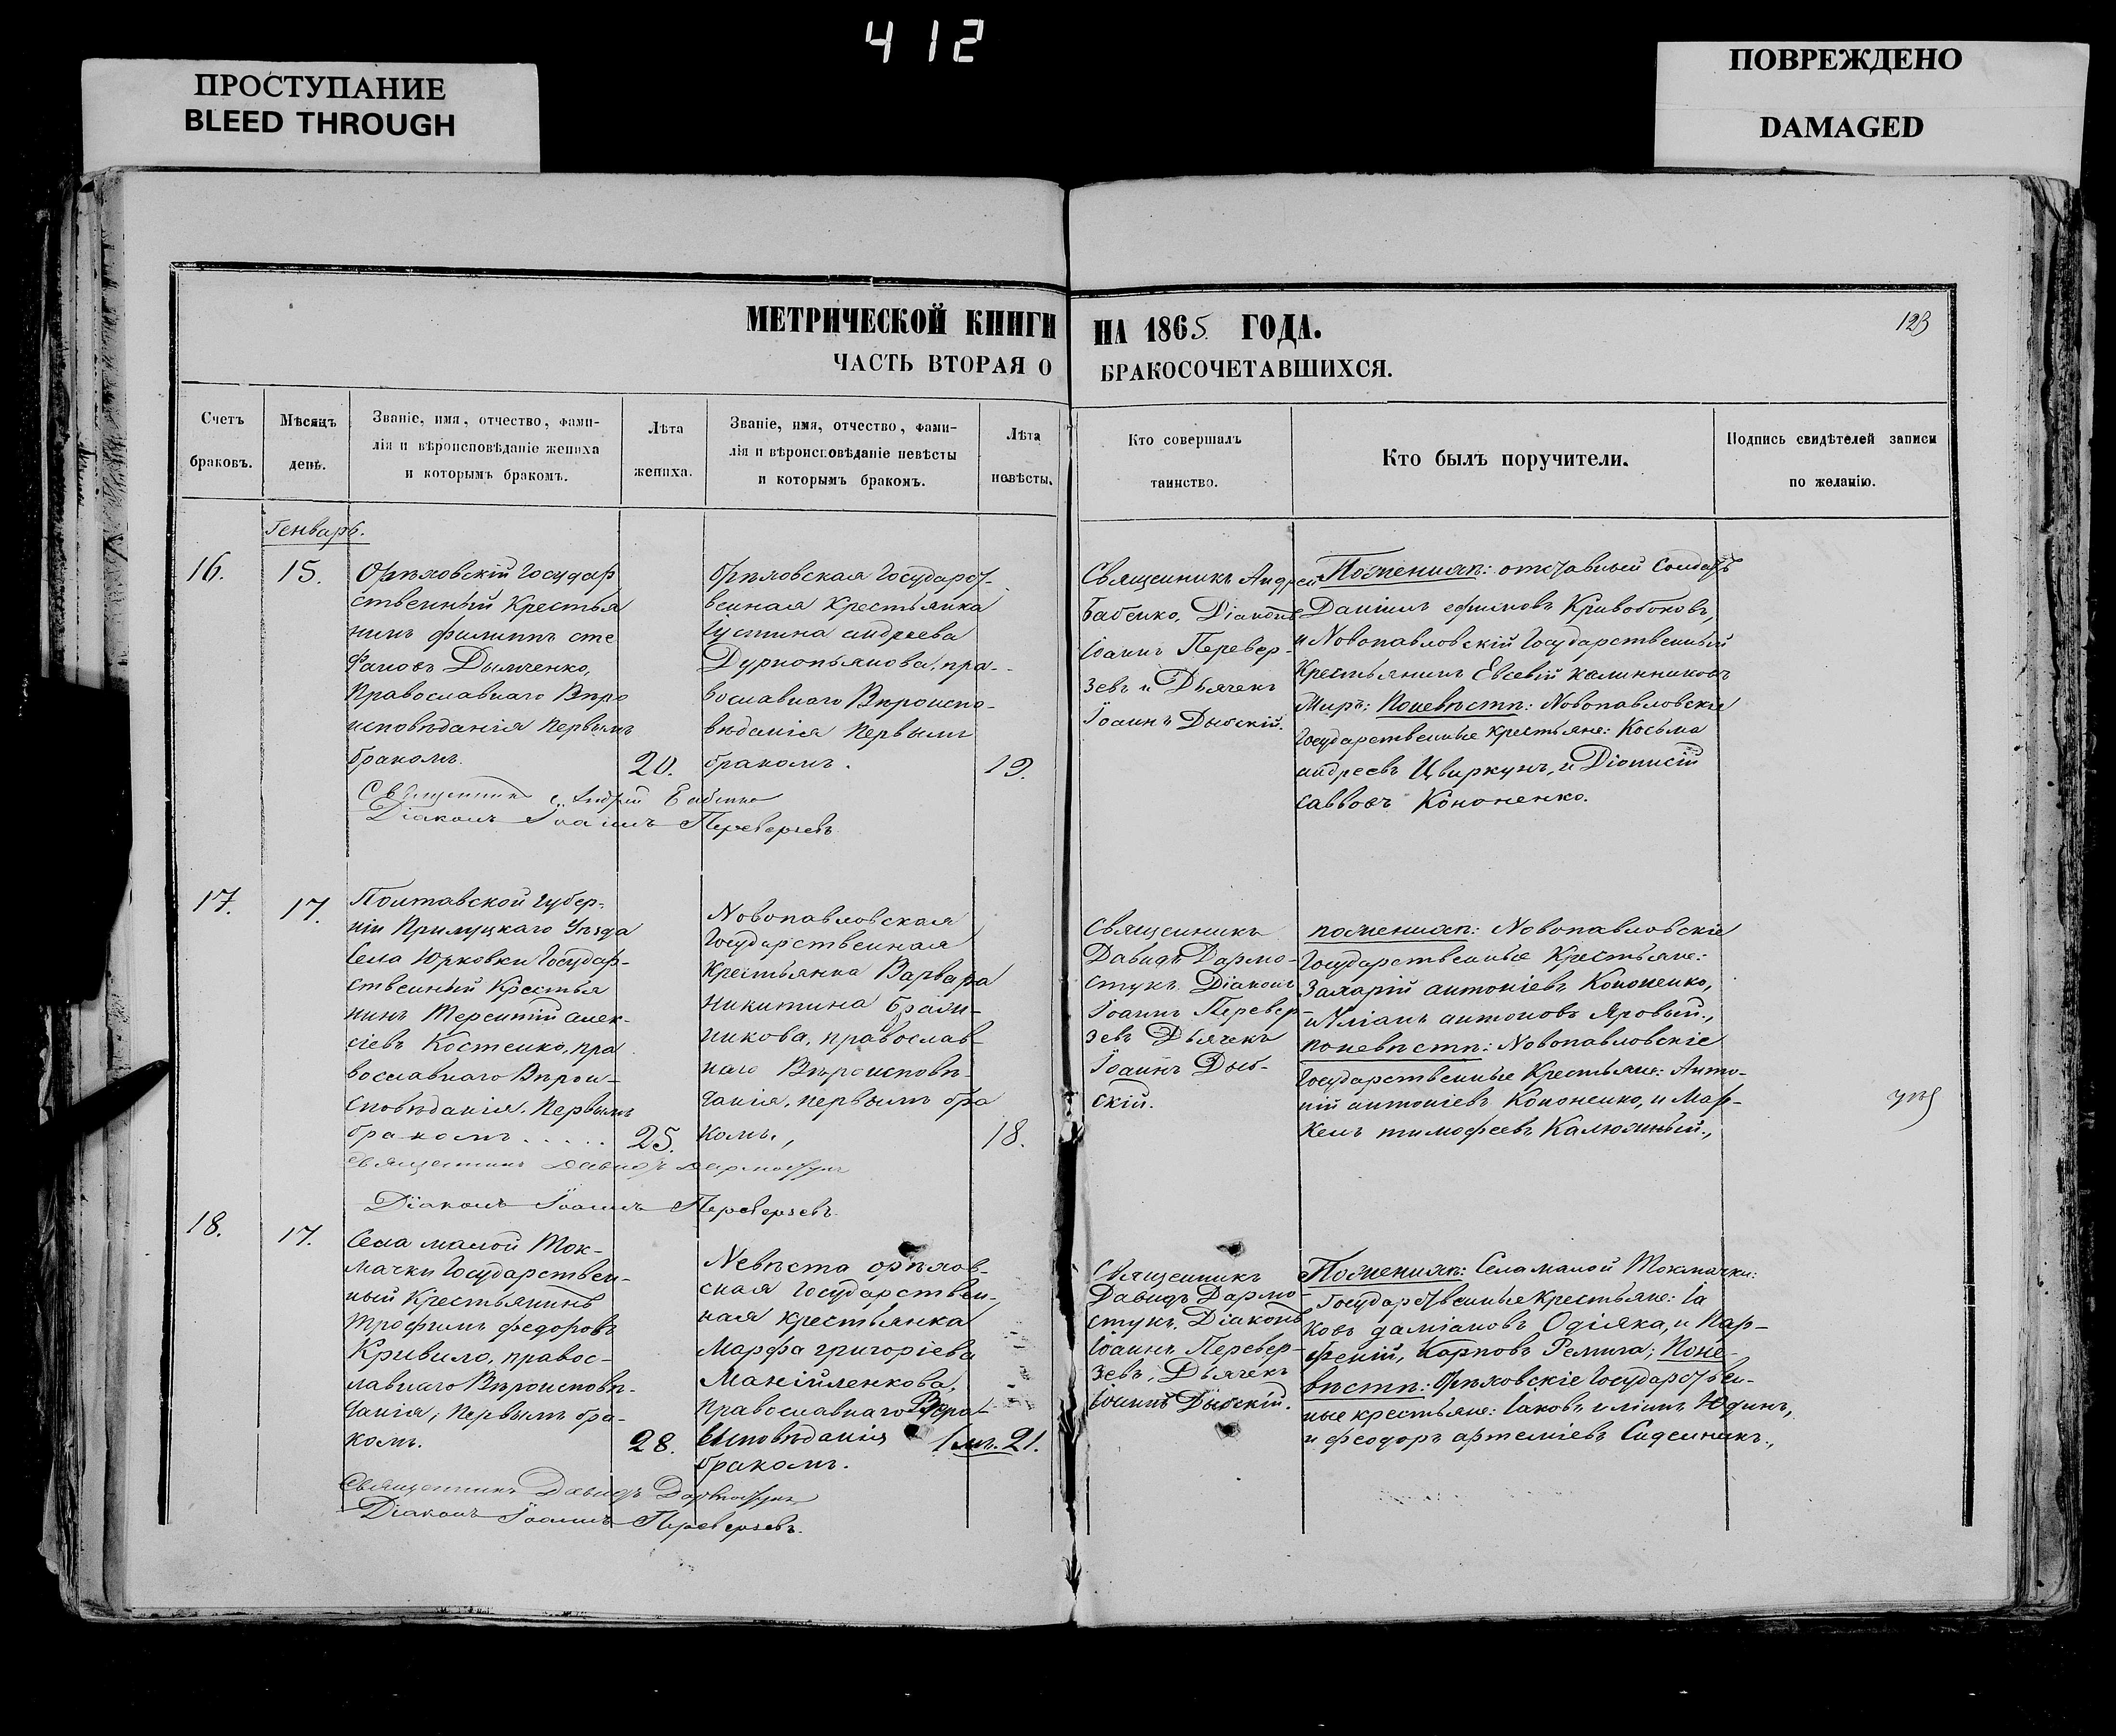 412
ПРОСТУПАНИЕ
BLEED THROUGH
ПОВРЕЖДЕНО
DAMAGED
МЕТРИЧЕСКОЙ КНИГИ НА 1865 ГОДА.
123
ЧАСТЬ ВТОРАЯ О БРАКОСОЧЕТАВШИХСЯ.
Счетъ
браковъ.
Мѣсяцъ
день.
Званіе, имя, отчество, фами-
лія и вѣроисповѣданіе жениха
и которымъ бракомъ.
Лѣта
жениха.
Званіе, имя, отчество, фами-
лія и вѣроисповѣданіе невѣсты
и которымъ бракомъ.
Лѣта
невѣсты.
Кто совершалъ
таинство.
Кто былъ поручители.
Подпись свидѣтелей записи
по желанію.
Генварь.
16.
15.
Орѣховскій Государ
ственный Крестья
нинъ филиппъ сте
фановъ Дымченко,
Православнаго Вѣро
исповѣданія первымъ
бракомъ.
20.
Орѣховская Государст-
венная крестьянка
Іустина андреева
Дурнопьянова, пра-
вославнаго Вѣроиспо-
вѣданія первымъ
бракомъ.
19.
Священникъ Андрей
Бабенко, Діаконъ
Іоаннъ Перевер-
зевъ и Дьячекъ
Іоаннъ Дыбскій.
Поженихѣ: отставный Солдатъ
Даніилъ ефимовъ Кривобоковъ,
и Новопавловскій Государственный
Крестьянинъ Евсевій калинниковъ
Миръ; Поневѣстѣ: Новопавловскіе
Государственные крестьяне: Косьма
андреевъ Цвиркунъ, и Діонисій
саввовъ Кононенко.
Священникъ Андрей Бабенко
Діаконъ Іоаннъ Переверзевъ
17.
17.
Полтавской губер-
ніи Прилуцкаго Уѣзда
Села Юрковки Государ-
ственный Крестья
нинъ Терентій алек-
сіевъ Костенко, пра
вославнаго Вѣрои-
сповѣданія. Первымъ
бракомъ.....
25.
Новопавловская
Государственная
Крестьянка Варвара
Никитина
никова, православ-
наго Вѣроисповѣ-
данія, первымъ бра
комъ.,
18.
Священникъ
Давидъ Дармо-
стукъ. Діаконъ
Іоаннъ Перевер-
зевъ Дьячекъ
Іоаннъ Дыб-
скій.
поженихѣ: Новопавловскіе
Государственные Крестьяне:
Захарій антоніевъ Кононенко,
и Уліанъ антоновъ Яровый.,
поневѣстѣ: Новопавловскіе
Государственные Крестьяне: Анто-
ній антоніевъ Кононенко, и Мар-
келъ тимофеевъ Калюжный.,
Священникъ Давидъ Дармостукъ
Діаконъ Іоаннъ Переверзевъ.
18.
17.
Села малой Ток-
мачки Государствен-
ный Крестьянинъ
Трофимъ федоровъ
Кривило, правос-
лавнаго Вѣроисповѣ-
данія, первымъ бра-
комъ.
28.
Невѣста орѣхов-
ская Государствен-
ная крестьянка
Марфа григоріева
Манійленкова,
Православнаго Вѣро-
исповѣданія 1мъ.
бракомъ.
21.
Священникъ
Давидъ Дармо-
стукъ. Діаконъ
Іоаннъ Перевер-
зевъ, Дьячекъ
Іоаннъ Дыбскій.
Поженихѣ: Села малой Токмачки:
Государственные крестьяне: Іа
ковъ даміановъ Одіяка, и Пар-
феній, Карповъ Ремига; Поне-
вѣстѣ: Орѣховскіе Государствен-
ные крестьяне: Іаковъ иліинъ Юдинъ,
и феодоръ артеміевъ Сиденникъ.,
Священникъ Давидъ Дармостукъ
Діаконъ Іоаннъ Переверзевъ.